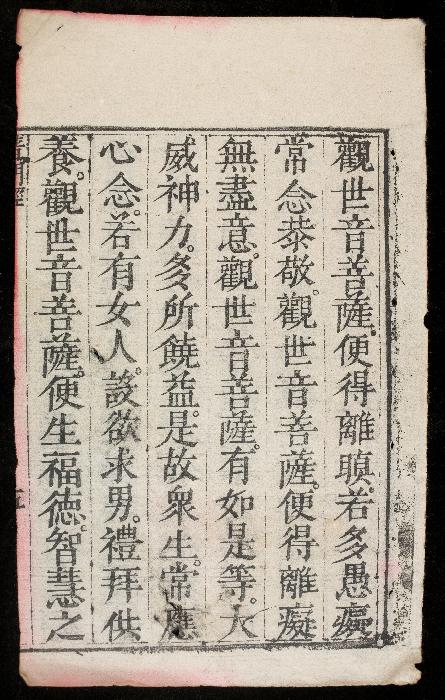 觀世音菩薩。便得離瞋。若多愚癡
常念恭敬。觀世音菩薩。便得離癡
無盡意。觀世音菩薩。有如是等。大
威神力。多所饒益。是故眾生。常應
心念。若有女人。設欲求男。禮拜供
養。觀世音菩薩。便生福德。智慧之